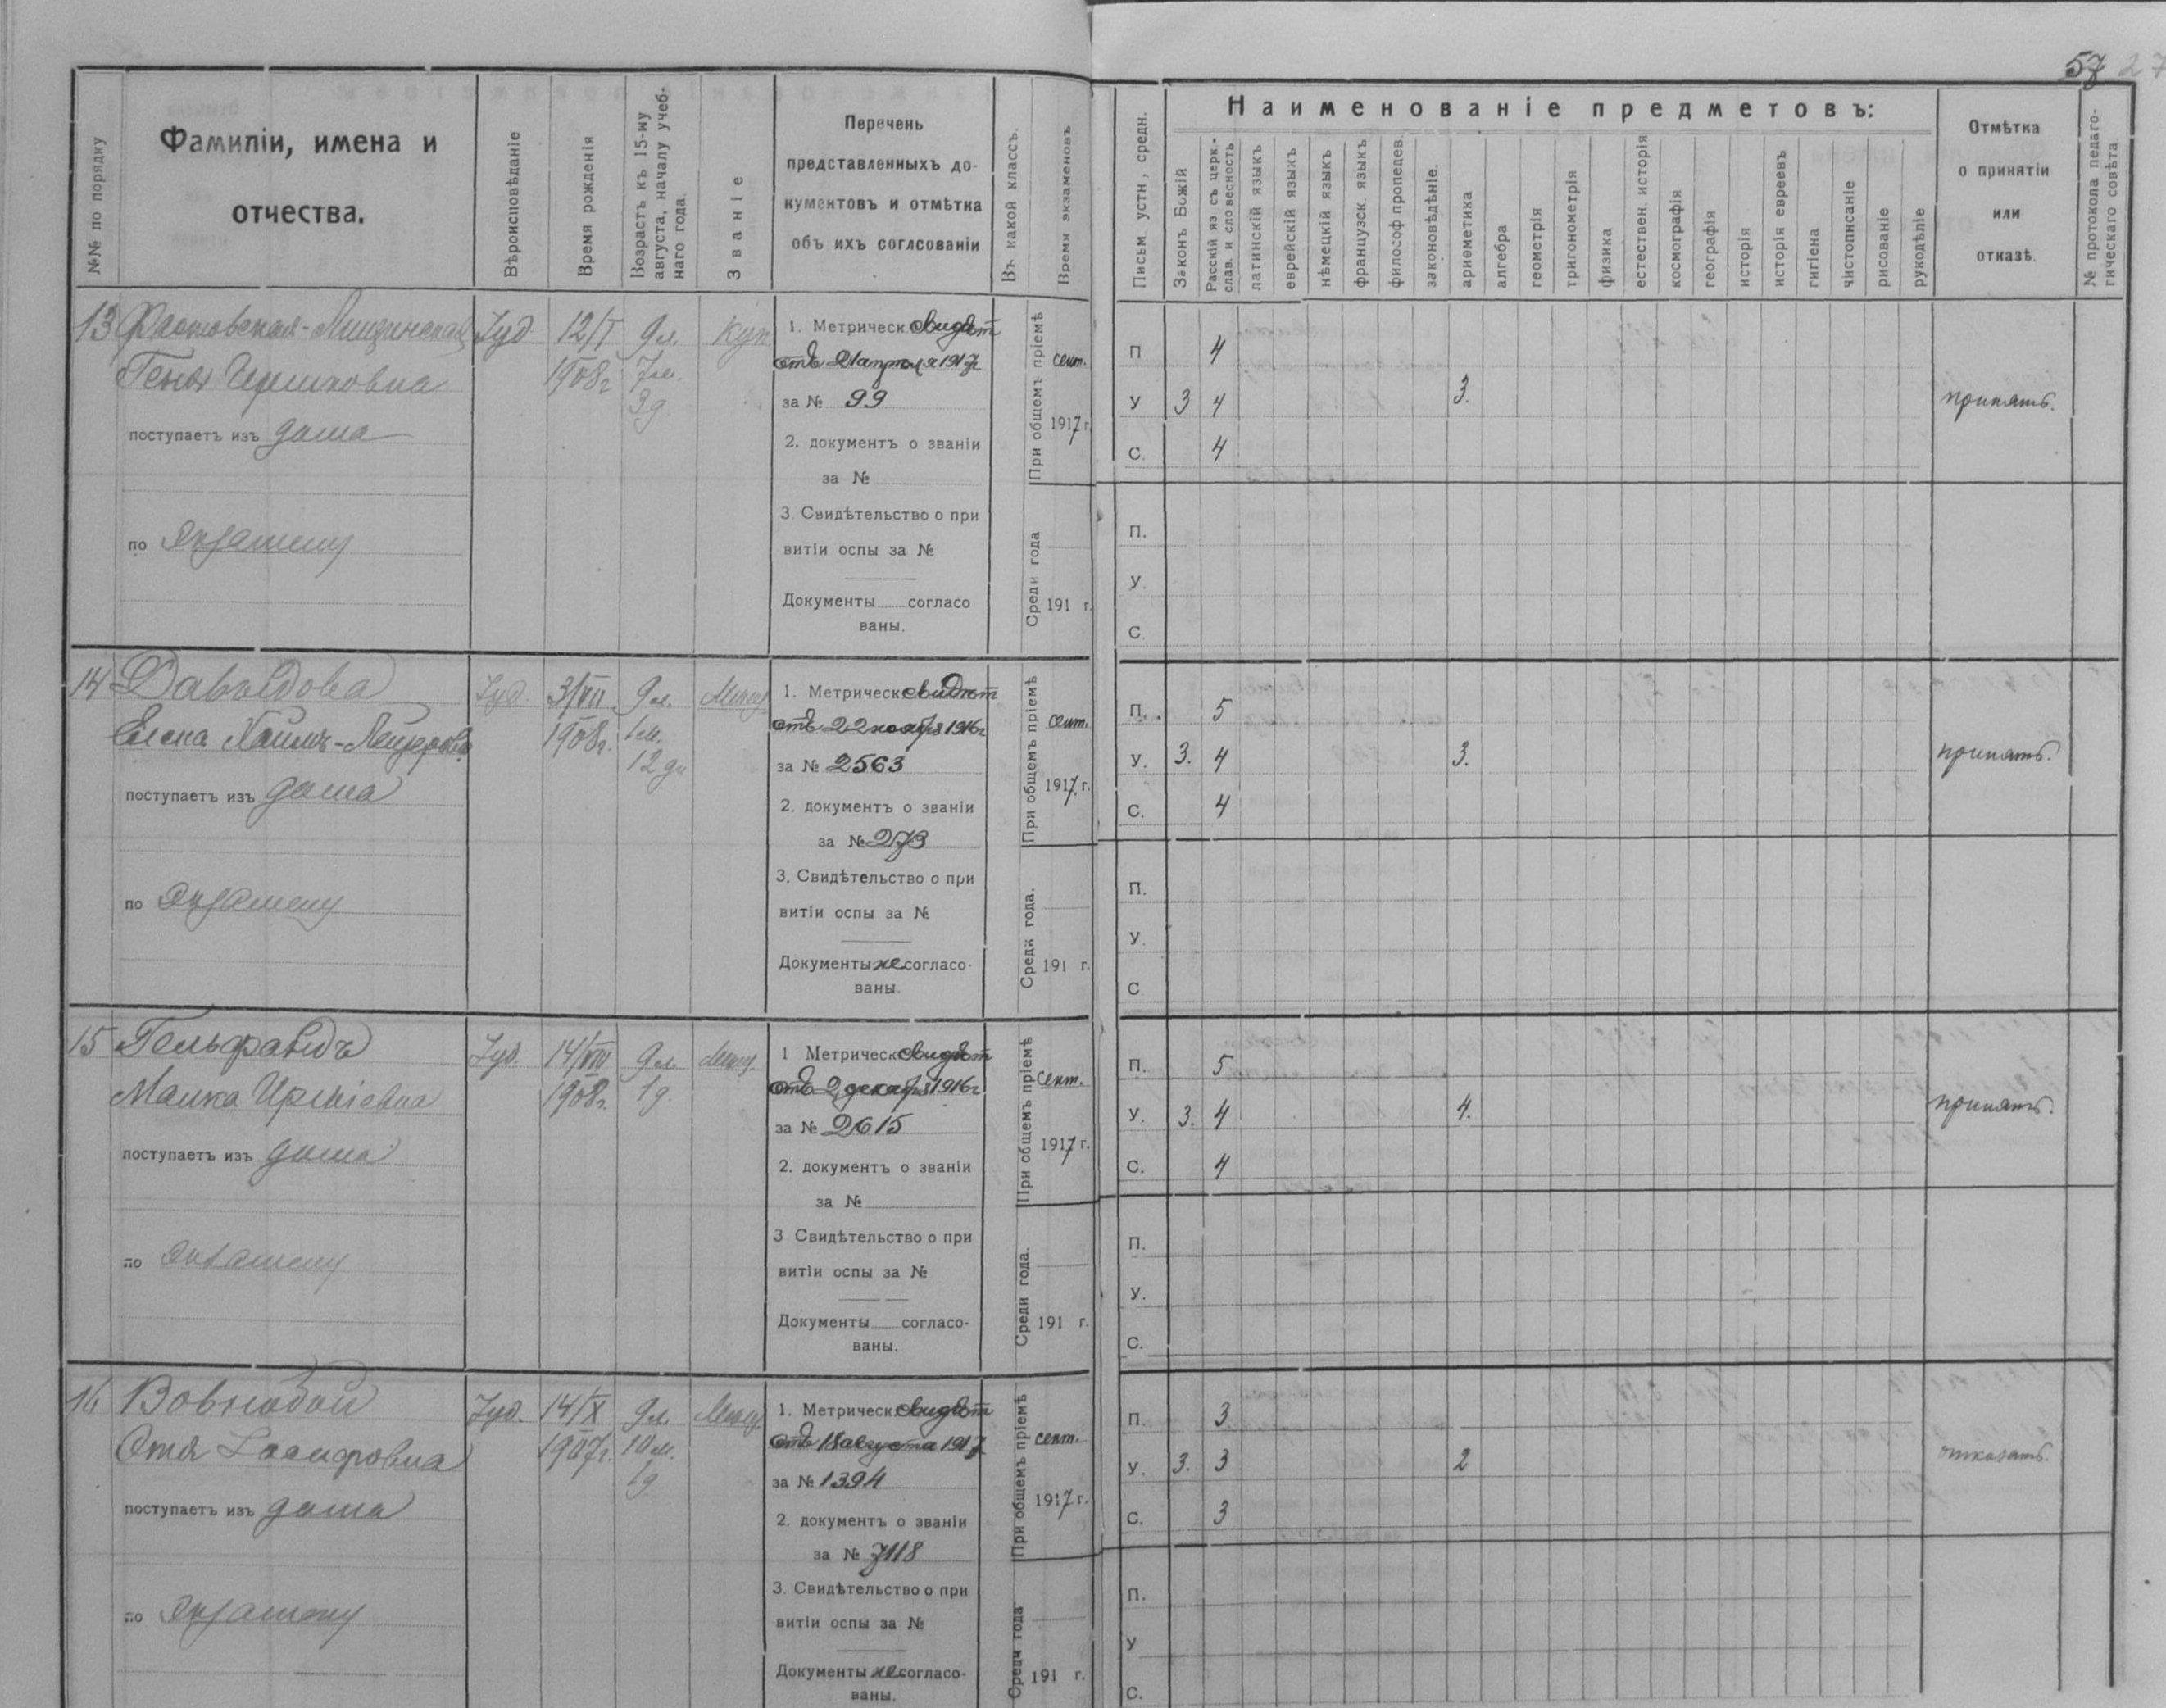 57 27
№№ по порядку
Фамиліи, имена и
отчества.
Вѣроисповѣданіе
Время рожденія
Возрастъ къ 15-му
августа, началу учеб-
наго года.
Званіе
Перечень
представленныхъ до-
кументовъ и отмѣтка
объ ихъ согласованіи
Въ какой классъ.
Время экзаменовъ
Письм. устн, средн.
Наименованіе предметовъ:
Законъ Божій
Расскій яз съ церк.-
слав. и словесность
латинскій языкъ
еврейскій языкъ
нѣмецкій языкъ
французск. языкъ
философ пропедев.
законовѣдѣніе.
ариѳметика
алгебра
геометрія
тригонометрія
физика
естествен. исторія
космографія
географія
исторія
исторія евреевъ
гигіена
чистописаніе
рисованіе
рукодѣліе
Отмѣтка
о принятіи
или
отказѣ.
№ протокола педаго-
гическаго совѣта.
13
Іуд 12/I 9 л. Куп
1. Метрическ. свидѣт
Геня Гершковна 1908 г 7 м. 3 д.
отъ 21 апрѣля 1917 г
за № 99
поступаетъ изъ дома
2. документъ о званіи
за №
3. Свидѣтельство о при
по экзамену
витіи оспы за №
Документы согласо
ваны.
При общемъ пріемѣ
сент.
1917 г.
Среди года
191 г.
П 4
У 3 4 3. принять.
С. 4
П.
У.
С.
14 Давыдова Іуд. 3/VII 9 л. Мѣщ
1. Метрическ свидѣт
Елена Хаимъ-Лейзеровн. 1908 г. 1 м. 12 дн
отъ 22 ноября 1916 г
за № 2563
поступаетъ изъ дома
2. документъ о званіи
за № 273
3. Свидѣтельство о при
по экзамену
витіи оспы за №
Документы не согласо-
ваны.
При общемъ пріемѣ
сент.
1917 г.
Среди года.
191 г.
П. 5
У. 3. 4 3. принять.
С. 4
П.
У.
С
15 Гельфандъ Іуд. 14/VIII 9 л. Мѣщ
1 Метрическ свидѣт
Малка 1908 г. 1 д.
отъ 2 декабря 1916 г
за № 2615
поступаетъ изъ дома
2. документъ о званіи
за №
3 Свидѣтельство о при
по экзамену
витіи оспы за №
Документы согласо-
ваны.
При общемъ пріемѣ
сент.
1917 г.
Среди года.
191 г.
П. 5
У. 3. 4 4. принять.
С. 4
П.
У.
С.
16 Вовнобой Іуд. 14/X 9 л. Мѣщ
1. Метрическ свидѣт
Этя Іосифовна 1907 г. 10 м. 1 д
отъ 18 августа 1917
за № 1394
поступаетъ изъ дома
2. документъ о званіи
за № 7118
3. Свидѣтельство о при
по экзамену
витіи оспы за №
Документы не согласо-
ваны.
При общемъ пріемѣ
сент.
1917 г.
Среди года
191 г.
П. 3
У. 3. 3 2 отказать.
С. 3
П.
У
С.